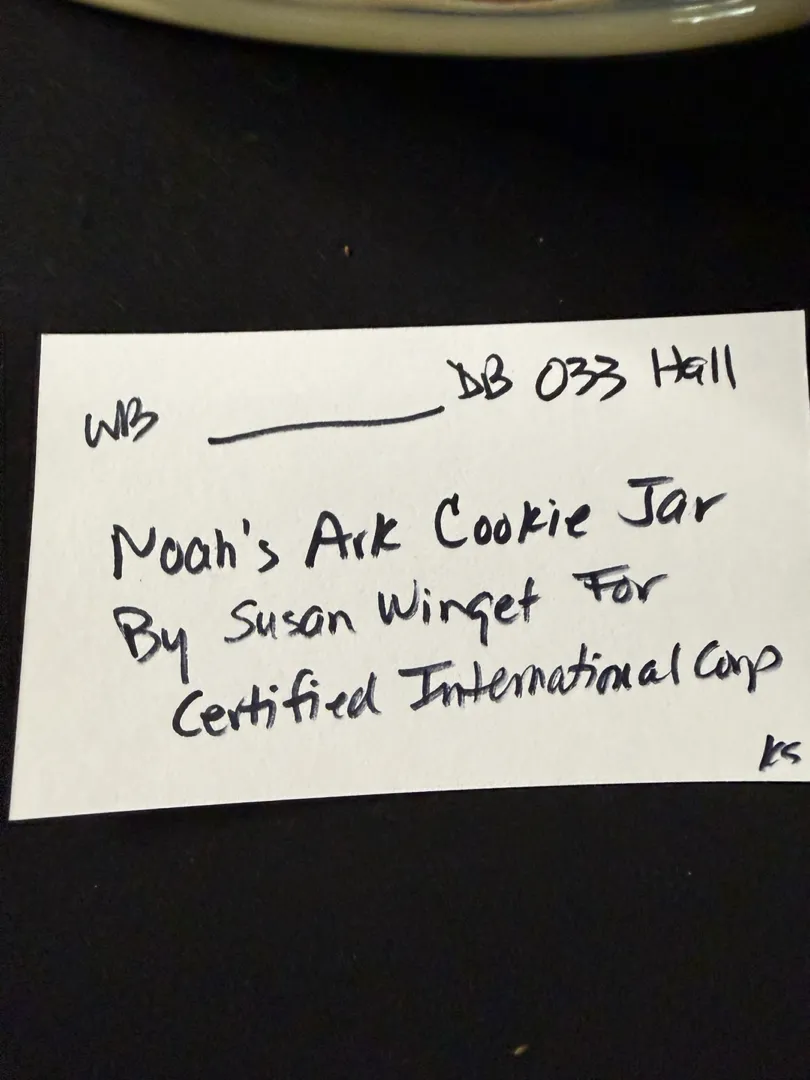 WB ________ DB 033 Hall
Noah's Ark Cookie Jar
By Susan Winget For
Certified International Corp
KS